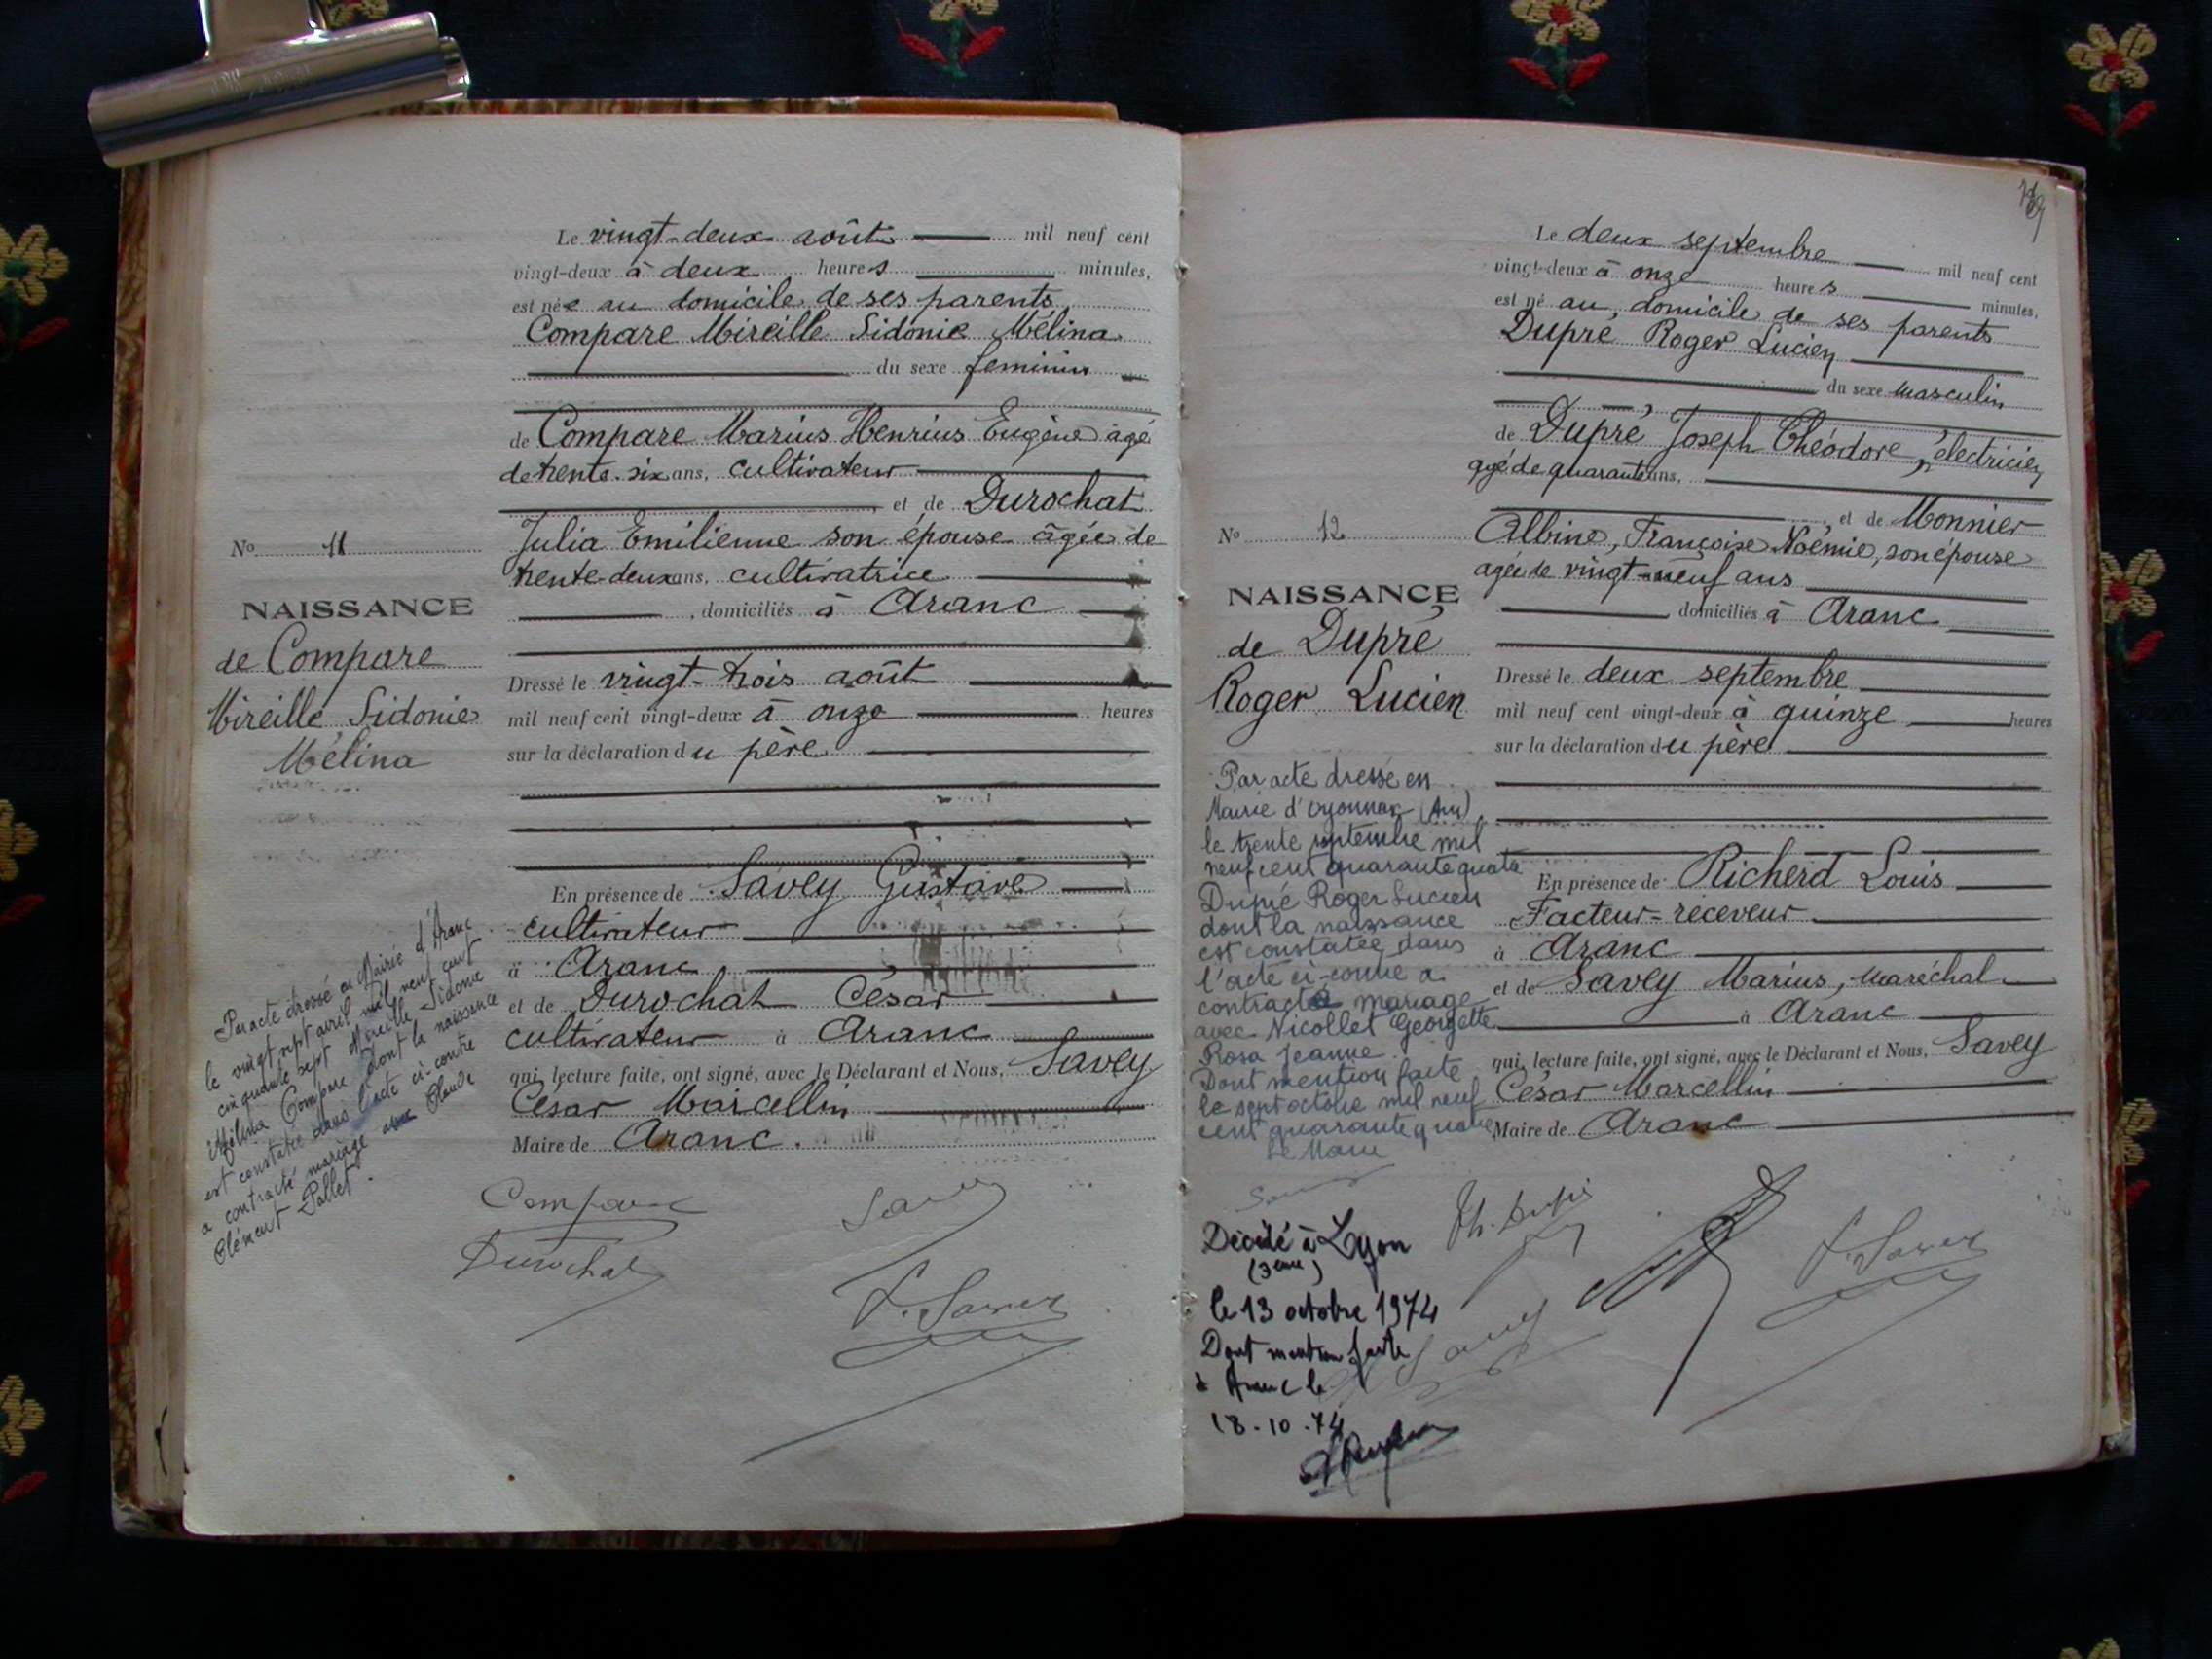 Le vingt-deux août mil neuf cent
vingt-deux à deux heures minutes,
est née au domicile de ses parents
Compare Mireille Sidonie Mélina
du sexe feminin
de Compare Marius Henrius Eugène agé
de trente-six ans, cultivateur
et de Durochat
Julia Emilienne son épouse âgée de
trente-deux ans, cultivatrice
, domiciliés à Aranc
Dressé le vingt-trois août
mil neuf cent vingt-deux à onze heures
sur la déclaration du père
En présence de Savey Gustave
cultivateur
à Aranc
et de Durochat César
cultivateur à Aranc
qui, lecture faite, ont signé, avec le Déclarant et Nous, Savey
César Marcellin
Maire de Aranc.
Compare
Durochat
Savey
No 11
NAISSANCE
de Compare
Mireille Sidonie
Mélina
Par acte dressé en Mairie d'Aranc
le vingt sept avril mil neuf cent
cinquante sept Mireille Sidonie
Mélina Compare dont la naissance
est constatée dans l'acte ci-contre
a contracté mariage avec Claude
Clément Pallet.
Le deux septembre mil neuf cent
vingt-deux à onze heures minutes,
est né au domicile de ses parents
Dupré Roger Lucien
du sexe masculin
de Dupré Joseph Théodore, électricien
agé de quarante ans,
et de Monnier
Albine, Françoise Noémie, son épouse
agée de vingt-neuf ans
domiciliés à Aranc
Dressé le deux septembre
mil neuf cent vingt-deux à quinze heures
sur la déclaration du père
En présence de Richerd Louis
Facteur-receveur
à Aranc
et de Savey Marius, maréchal
à Aranc
qui, lecture faite, ont signé, avec le Déclarant et Nous, Savey
César Marcellin
Maire de Aranc
Th. Dupré
Savey
No 12
NAISSANCE
de Dupré
Roger Lucien
Par acte dressé en
Mairie d'Oyonnax (Ain)
le trente septembre mil
neuf cent quarante quatre
Dupré Roger Lucien
dont la naissance
est constatée dans
l'acte ci-contre a
contracté mariage
avec Nicollet Georgette
Rosa Jeanne.
Dont mention faite
le sept octobre mil neuf
cent quarante quatre
Le Maire
Décédé à Lyon
(3ème)
le 13 octobre 1974
Dont mention faite
à Aranc le
18-10-74